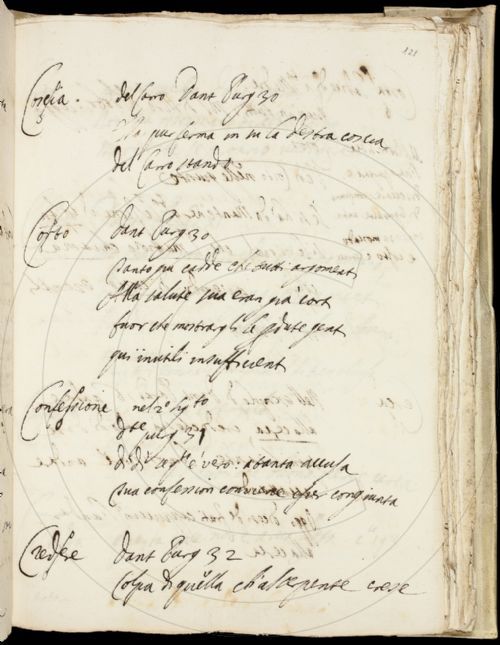 121
Coscia. del Carro Dant Purg 30
Ella pur ferma in su la destra coscia
del Carro stando
Corto Dant Purg 30
Tanto giu cadde che tutti argomenti
Alla salute sua eran già corti
fuor che mostrargli le pdute genti
qui inutili insufficienti
Confessione nel
Dte purg. 31
di di se qto è vero: a tanta accusa
tua confession conviene esser congiunta
Credere Dant Purg 32
Colpa di quella ch'al serpente crese